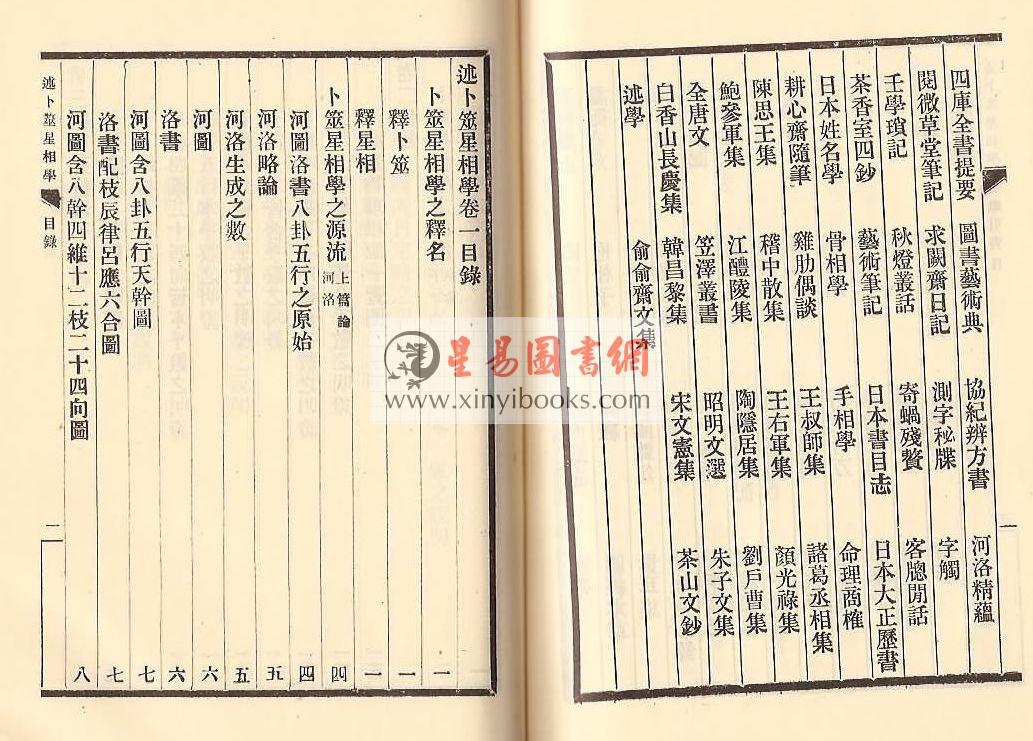 四庫全書提要 圖書藝術典 協紀辨方書 河洛精蘊
閱微草堂筆記 求闕齋日記 測字秘牒 字觸
壬學瑣記 秋燈叢話 寄蝸殘贅 客窻閒話
茶香室四鈔 藝術筆記 日本書目志 日本大正歷書
日本姓名學 骨相學 手相學 命理商榷
耕心齋隨筆 雞肋偶談 王叔師集 諸葛丞相集
陳思王集 稽中散集 王右軍集 顏光祿集
鮑參軍集 江醴陵集 陶隱居集 劉戶曹集
全唐文 笠澤叢書 昭明文選 朱子文集
白香山長慶集 韓昌黎集 宋文憲集 茶山文鈔
述學 俞俞齋文集
一
述卜筮星相學卷一目錄
卜筮星相學之釋名 一
釋卜筮 一
釋星相 一
卜筮星相學之源流 上篇論河洛 四
河圖洛書八卦五行之原始 四
河洛略論 五
河洛生成之數 五
河圖 六
洛書 六
河圖含八卦五行天幹圖 七
洛書配枝辰律呂應六合圖 七
河圖含八幹四維十二枝二十四向圖 八
述卜筮星相學 目錄 一
星易圖書網
www.xinyibooks.com